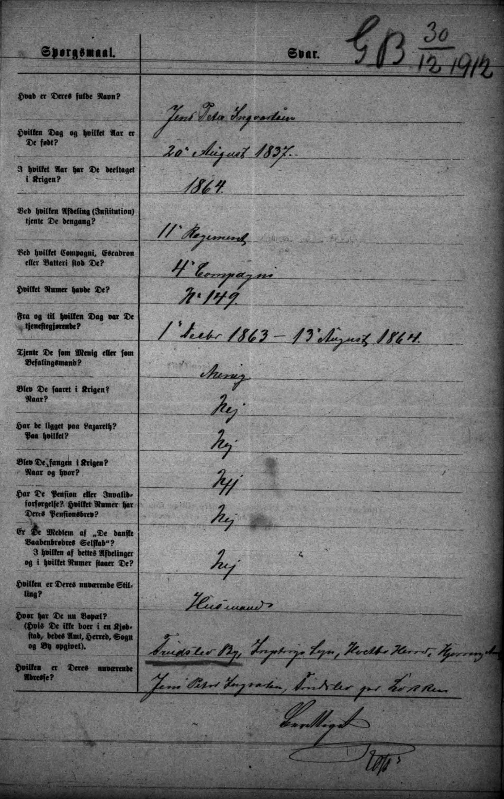 Spørgsmaal.
Svar.
GB 30/12 1912
Hvad er Deres fulde Navn?
Jens Peter Ingvartsen
Hvilken Dag og hvilket Aar er
De født?
20de August 1837.
I hvilket Aar har De deeltaget
i Krigen?
1864.
Ved hvilken Afdeling (Institution)
tjente De dengang?
11te Regement
Ved hvilket Compagni, Escadron
eller Batteri stod De?
4de Compagni
Hvilket Numer havde De?
No 149.
Fra og til hvilken Dag var De
tjenestegjørende?
1ste Decbr 1863 – 13de August 1864.
Tjente De som Menig eller som
Befalingsmand?
Menig
Blev De saaret i Krigen?
Naar?
Nej
Har de ligget paa Lazareth?
Paa hvilket?
Nej
Blev De fangen i Krigen?
Naar og hvor?
Nej
Har De Pension eller Invalid-
forsørgelse? Hvilket Numer har
Deres Pensionsbrev?
Nej
Er De Medlem af „De danske
Vaabenbrødres Selskab"?
I hvilken af dettes Afdelinger
og i hvilket Numer staaer De?
Nej
Hvilken er Deres nuværende Stil-
ling?
Husmand
Hvor har De nu Bopæl?
(Hvis De ikke boer i en Kjøb-
stad, bedes Amt, Herred, Sogn
og By opgivet).
By, Sogn, Hvetbo Herred, Hjørring Amt
Hvilken er Deres nuværende
Adresse?
Jens Peter Ingvartsen, per Løkken